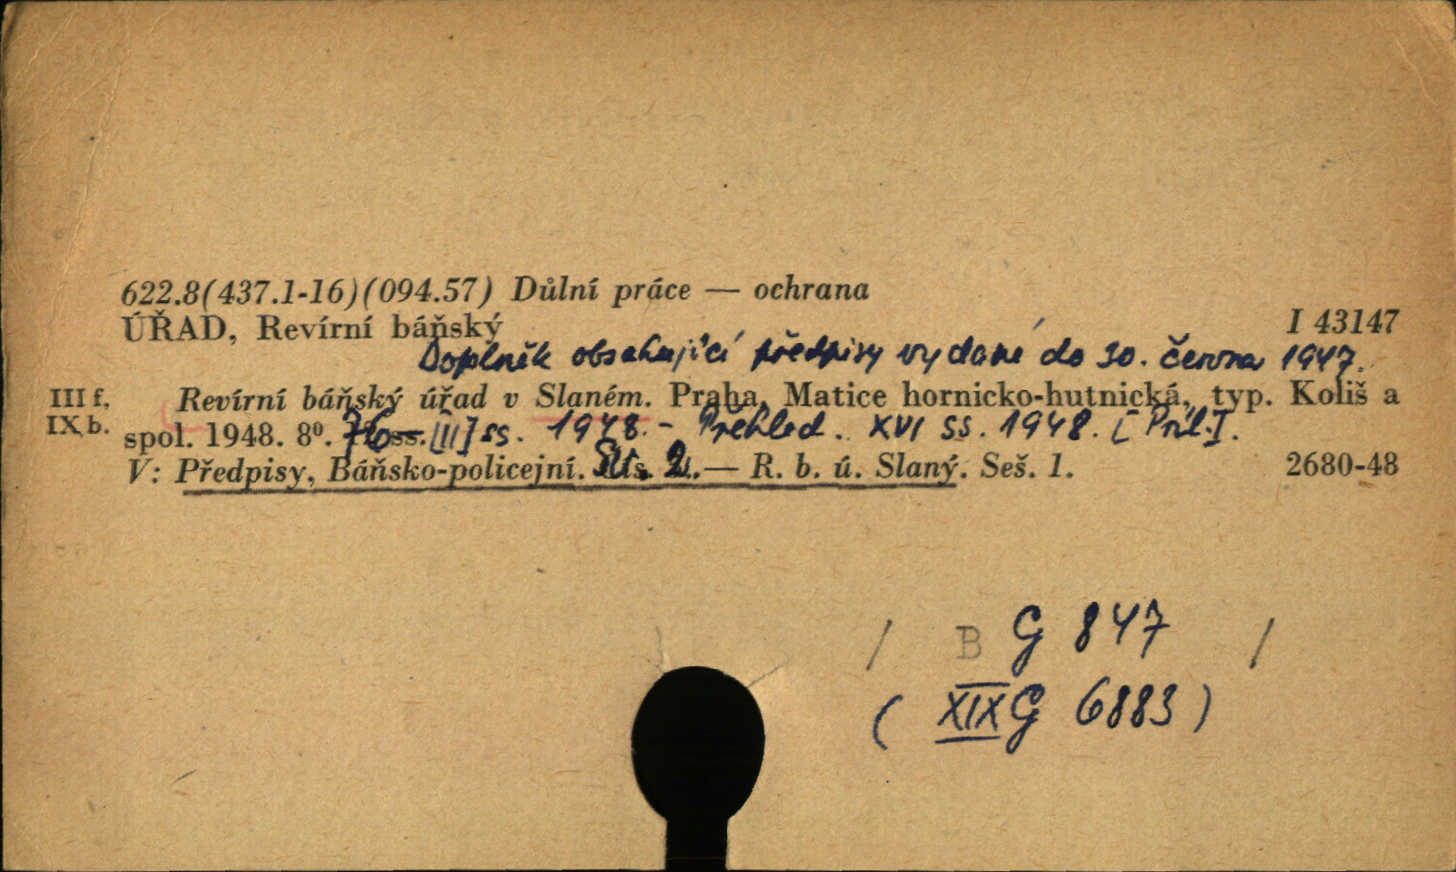 622.8(437.1-16)(094.57) Důlní práce — ochrana
ÚŘAD, Revírní báňský I 43147
Doplněk obsahující předpisy vydané do 30. června 1947.
III f. Revírní báňský úřad v Slaném. Praha, Matice hornicko-hutnická, typ. Koliš a
IX b. spol. 1948. 8⁰. ss. [II] ss. 1948. - Přehled. XVI ss. 1948. [Příl. I.
V: Předpisy, Báňsko-policejní. 2. — R. b. ú. Slaný. Seš. 1. 2680-48
/ B G 847 /
( XIX G 6883 )